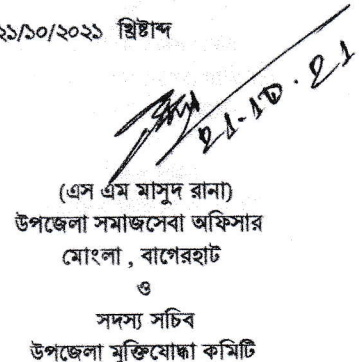 ২১/১০/২০২১ খ্রিষ্টাব্দ
21-10-21
(এস এম মাসুদ রানা)
উপজেলা সমাজসেবা অফিসার
মোংলা , বাগেরহাট
ও
সদস্য সচিব
উপজেলা মুক্তিযোদ্ধা কমিটি